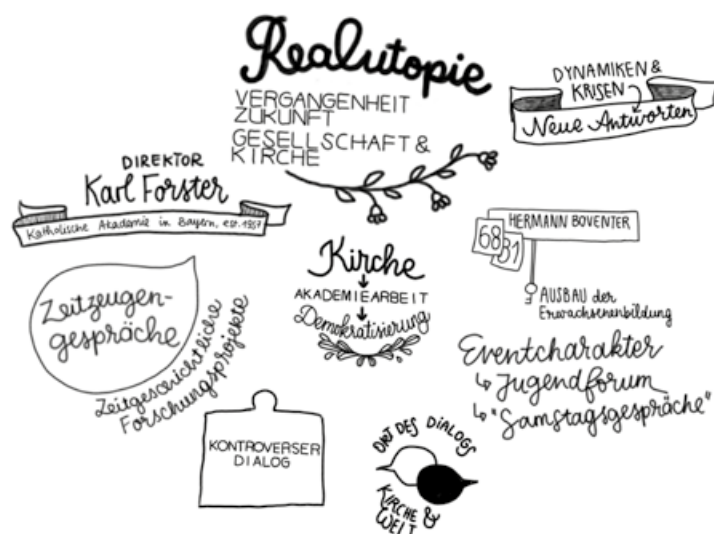 Realutopie
VERGANGENHEIT
ZUKUNFT
GESELLSCHAFT &
KIRCHE
DYNAMIKEN &
KRISEN
Neue Antworten
DIREKTOR
Karl Forster
Katholische Akademie in Bayern, est. 1957
Kirche
AKADEMIEARBEIT
Demokratisierung
HERMANN BOVENTER
68
31
AUSBAU der
Erwachsenenbildung
Zeitzeugen-
gespräche
Zeitgescichtliche
Forschungsprojekte
Eventcharakter
Jugendforum
"Samstagsgespräche"
KONTROVERSER
DIALOG
ORT DES DIALOGS
KIRCHE &
WELT